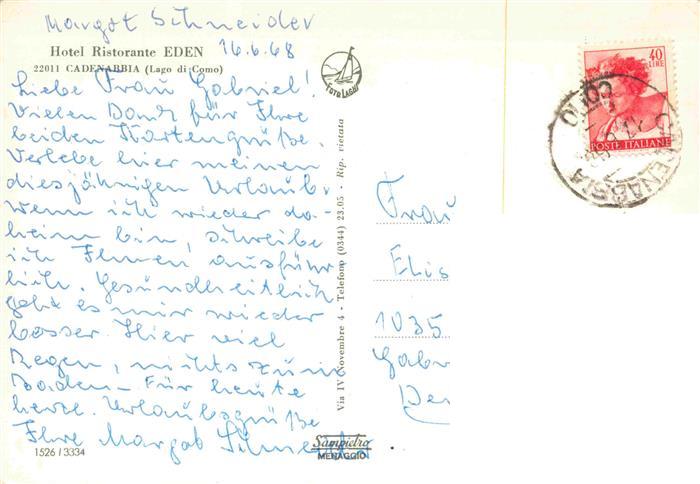 Margot Schneider
Hotel Ristorante EDEN
16.6.68
22011 CADENABBIA (Lago di Como)
Liebe Frau Gabriel!
Vielen Dank für Ihre
beiden Kartengrüße.
Verlebe hier meinen
diesjährigen Urlaub.
Wenn ich wieder da-
heim bin, schreibe
ich Ihnen ausführ
lich. Gesundheitlich
geht es mir wieder
besser. Hier viel
Regen, nichts zum
Baden – Für heute
herzl. Urlaubsgrüße
Ihre Margot Schneider
1526 / 3334
FOTO LAGHI
Via IV Novembre 4 - Telefono (0344) 23.05 - Rip. vietata
Sampietro
MENAGGIO
40
LIRE
POSTE ITALIANE
CADENABBIA
COMO
Frau
Elis
1035
Gabr